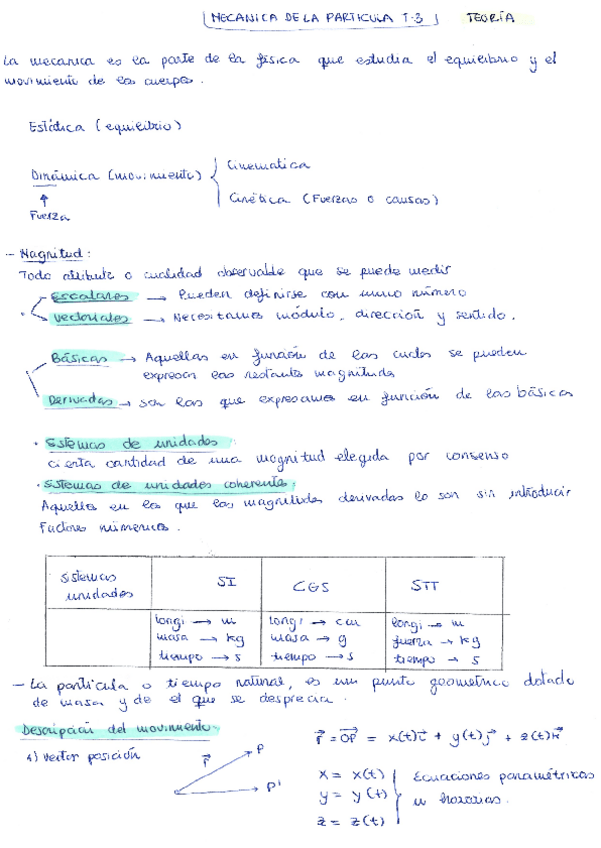 MECANICA DE LA PARTICULA T-3 TEORÍA
La mecanica es la parte de la física que estudia el equilibrio y el
movimiento de los cuerpos.
Estática (equilibrio)
Dinámica (movimiento)
Cinematica
Cinética (Fuerzas o causas)
Fuerza
- Magnitud:
Todo atributo o cualidad observable que se puede medir
Escalares → Pueden definirse con un número
Vectoriales → Necesitamos módulo, dirección y sentido.
Básicas → Aquellas en función de las cuales se pueden
expresar las restantes magnitudes
Derivadas → son las que expresamos en función de las básicas
· Sistemas de unidades:
cierta cantidad de una magnitud elegida por consenso
· Sistemas de unidades coherentes:
Aquellos en los que las magnitudes derivadas lo son sin introducir
Factores númericos.
Sistemas unidades SI CGS STT
longi → m longi → cm longi → m
masa → kg masa → g fuerza → kg
tiempo → s tiempo → s tiempo → s
- La partícula o tiempo natural, es un punto geometrico dotado
de masa y de el que se desprecia.
Descripción del movimiento
1) Vector posición
r⃗ P P'
r⃗ = OP⃗ = x(t)i⃗ + y(t)j⃗ + z(t)k⃗
x = x(t)
y = y(t)
z = z(t)
Ecuaciones paramétricas
u horarias.